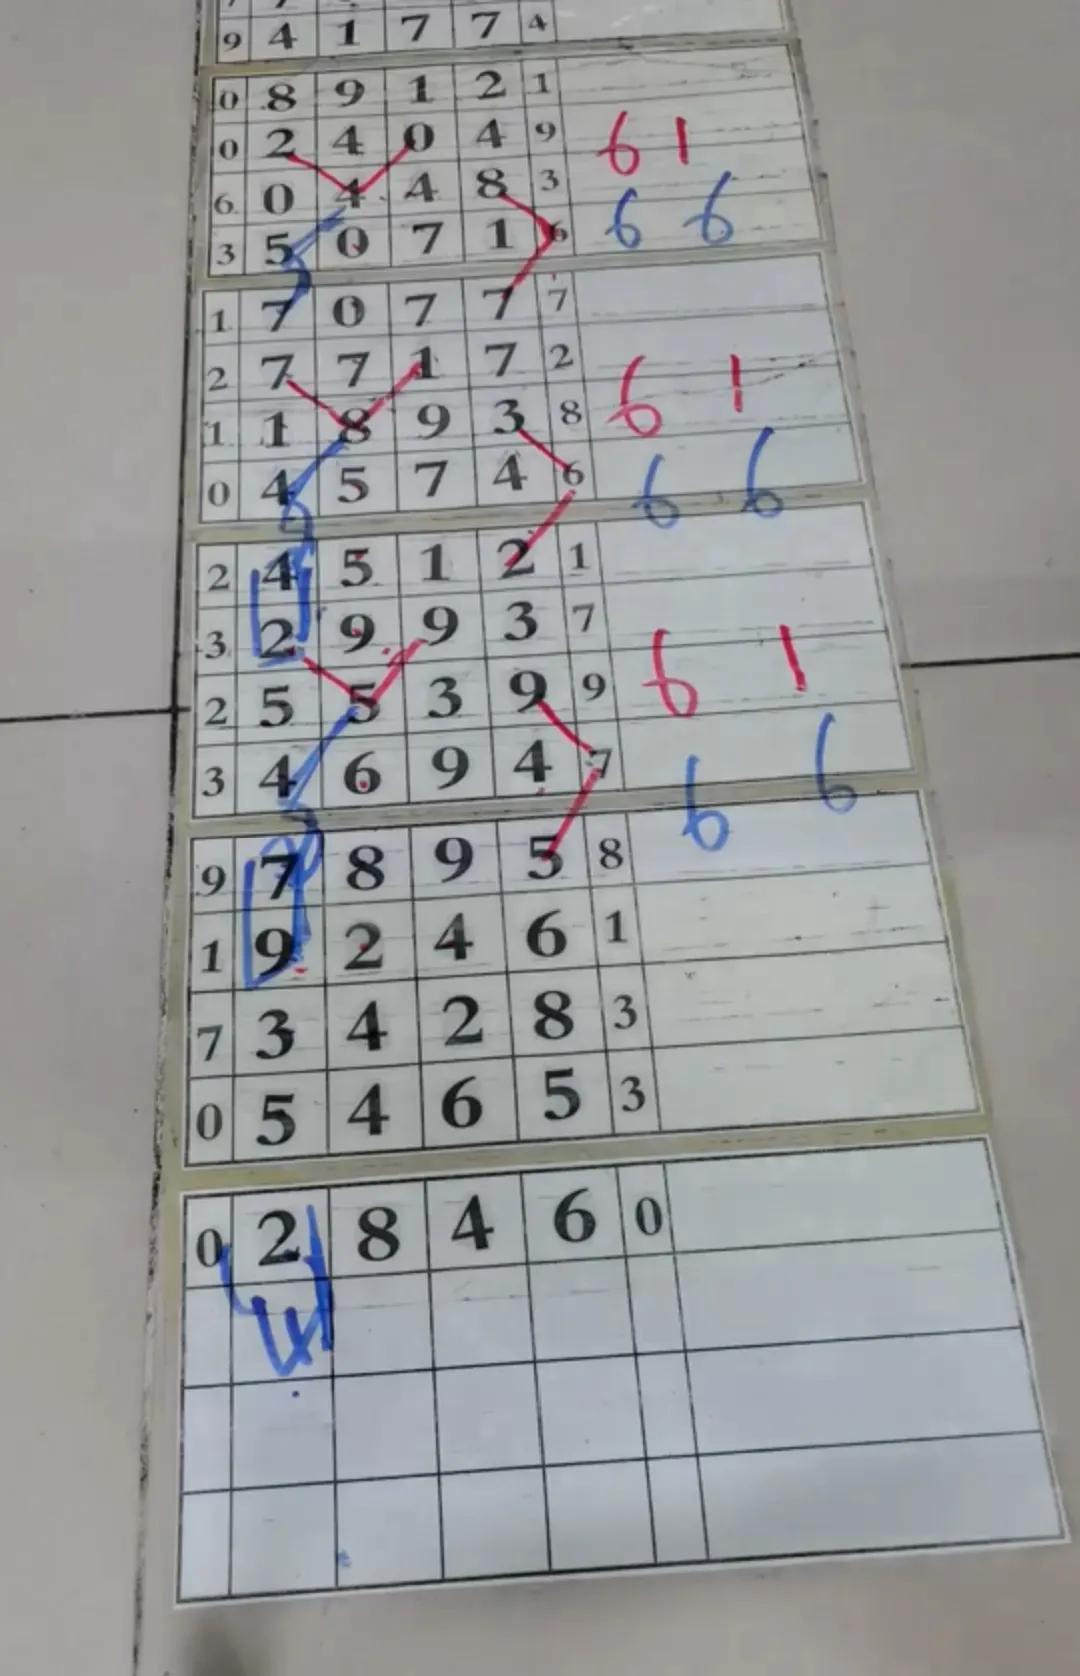 9 4 1 7 7 4
0 8 9 1 2 1
0 2 4 0 4 9 6 1
6 0 4 4 8 3
3 5 0 7 1 6 6 6
1 7 0 7 7 7
2 7 7 1 7 2
1 1 8 9 3 8 6 1
0 4 5 7 4 6 6 6
2 4 5 1 2 1
3 2 9 9 3 7
2 5 5 3 9 9 6 1
3 4 6 9 4 7 6 6
9 7 8 9 5 8
1 9 2 4 6 1
7 3 4 2 8 3
0 5 4 6 5 3
0 2 8 4 6 0